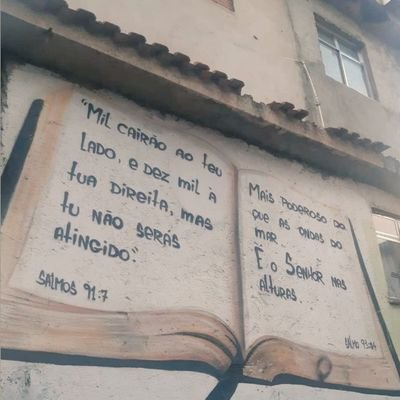 "Mil cairão ao teu
lado, e dez mil à
tua direita, mas
tu não serás
atingido".
Salmos 91:7
Mais poderoso do
que as ondas do
mar
É o Senhor nas
alturas